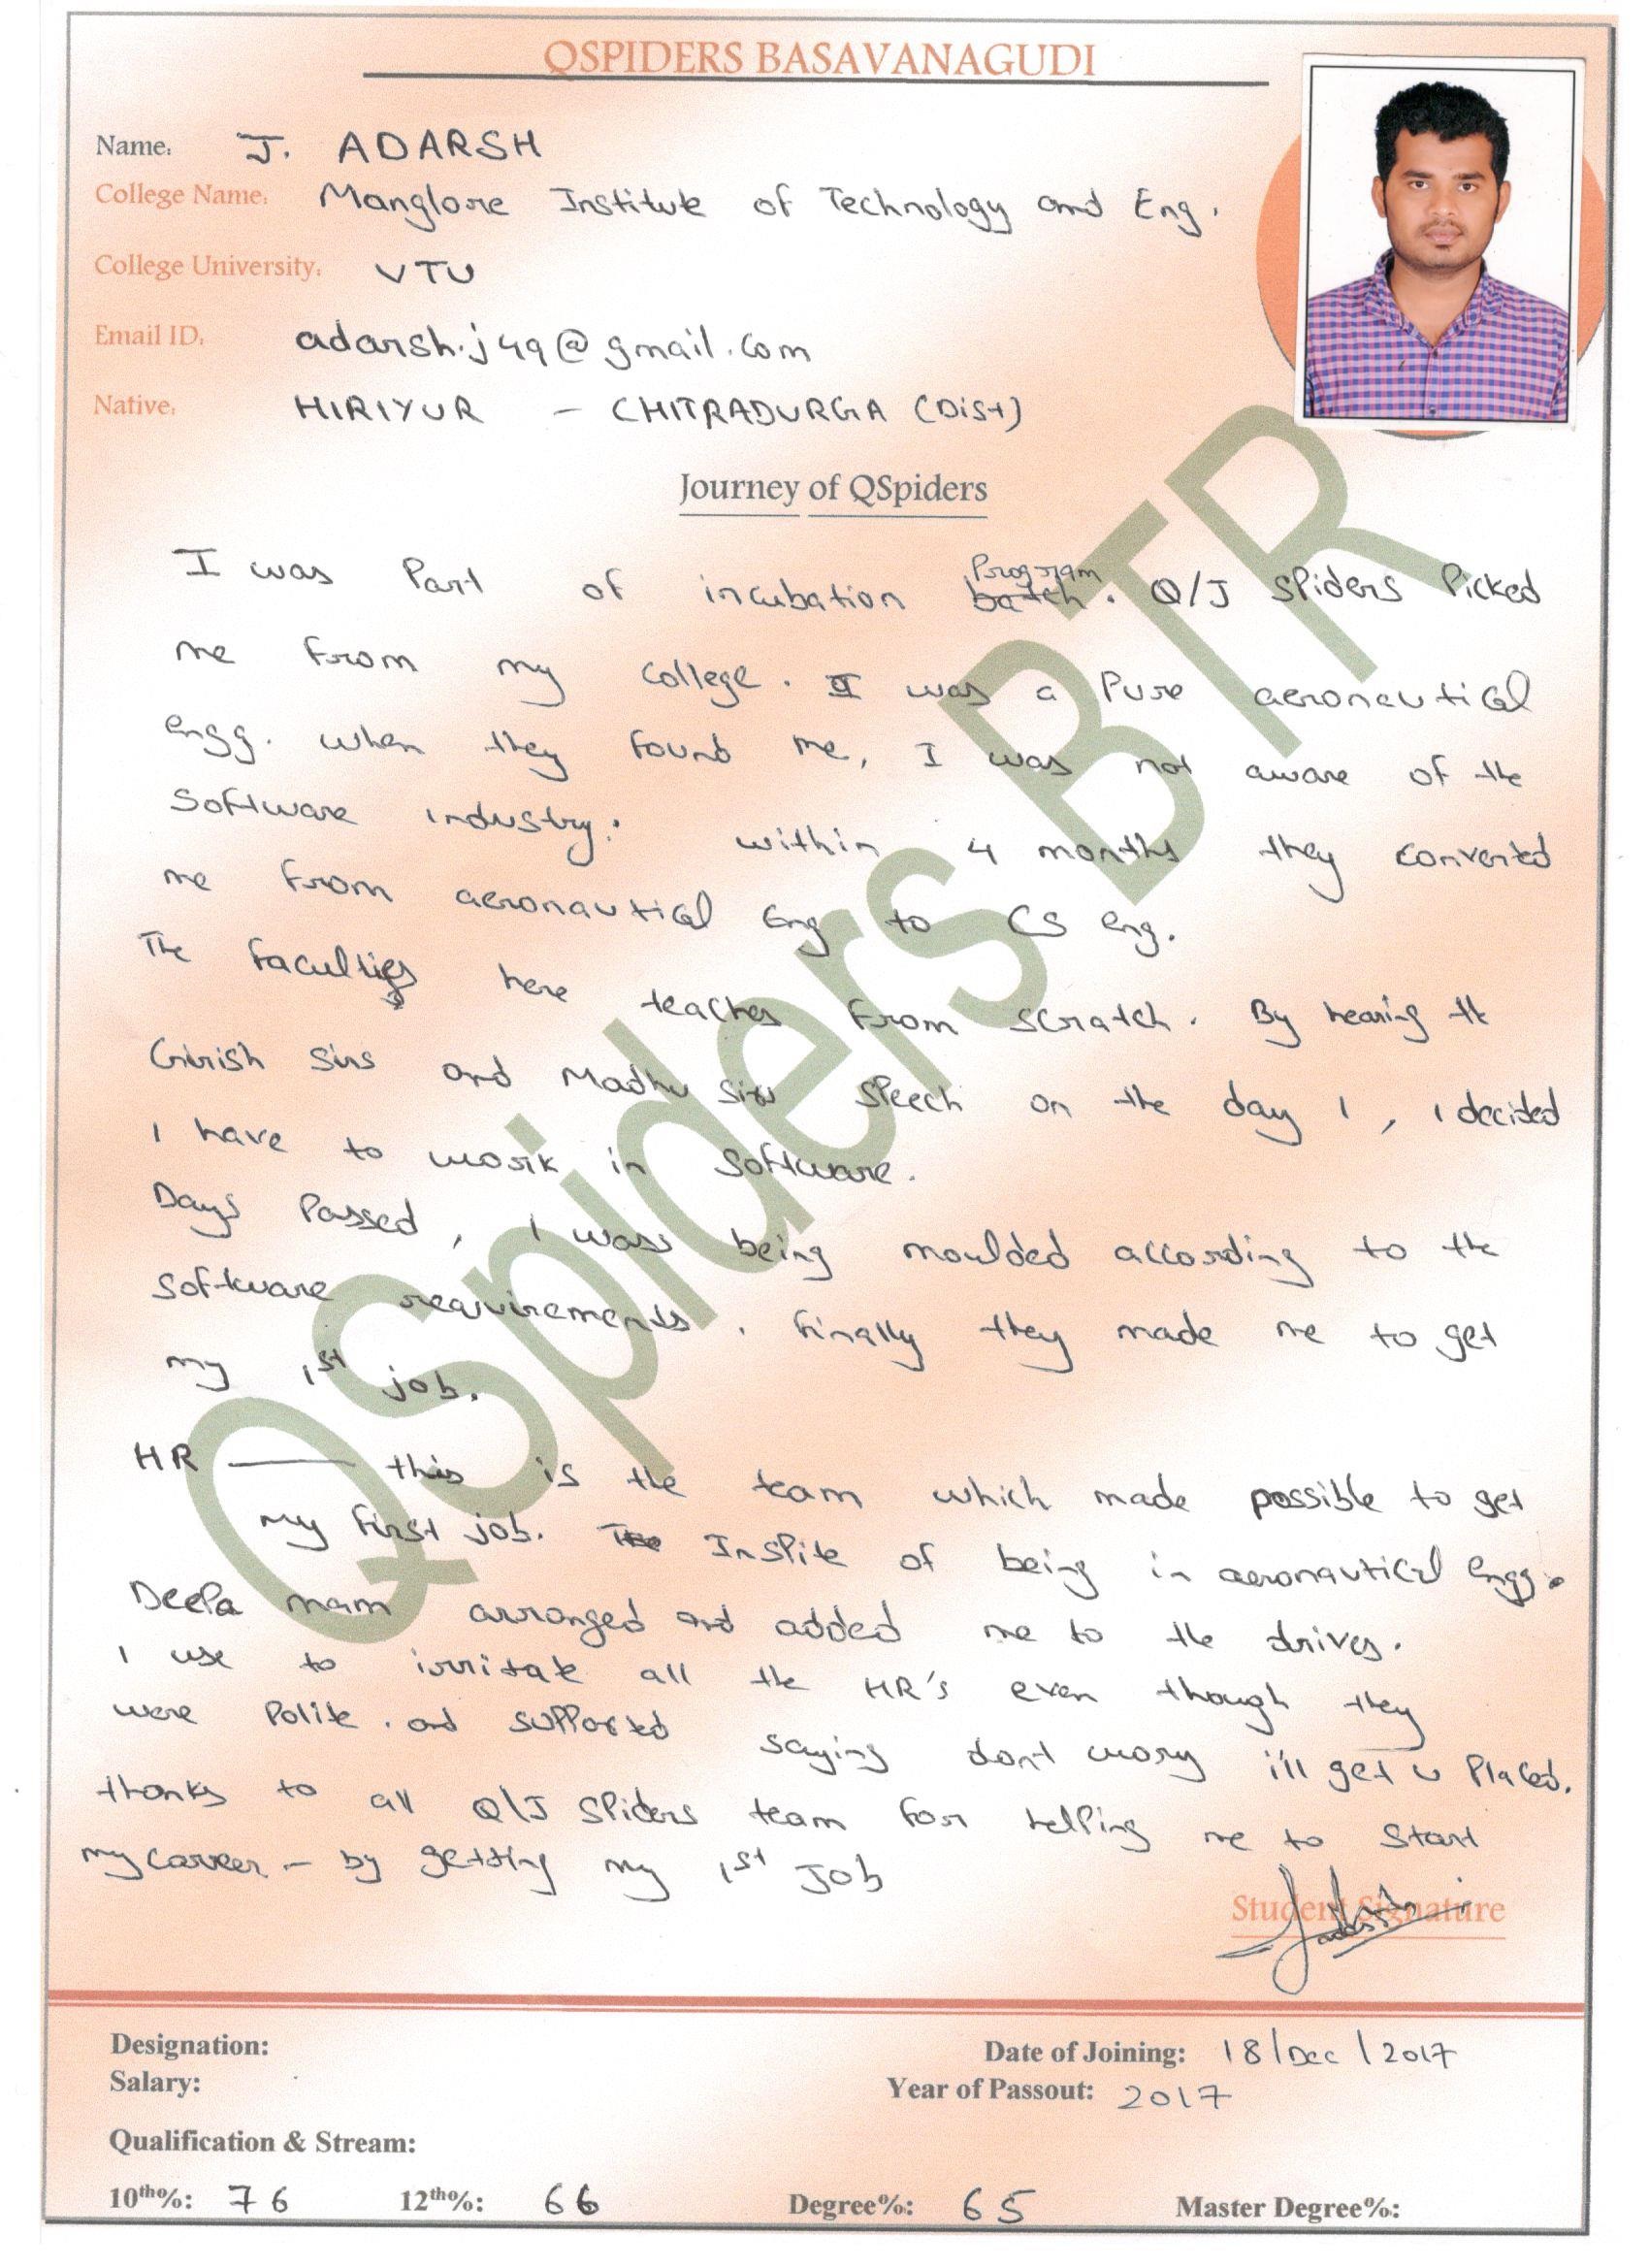 QSPIDERS BASAVANAGUDI
Name: J. ADARSH
College Name: Manglore Institute of Technology and Eng.
College University: VTU
Email ID: adarsh.j49@gmail.com
Native: HIRIYUR - CHITRADURGA (Dist)
Journey of QSpiders
Program
I was Part of incubation batch. Q/J spiders Picked
me from my college. I was a Pure aeronautical
engg. when they found me, I was not aware of the
Software industry. within 4 months they converted
me from aeronautical Eng to CS eng.
The faculties here teaches from scratch. By hearing the
Girish Sirs and Madhu Sirs speech on the day 1, I decided
I have to work in software.
Days Passed, I was being moulded according to the
software requirements. Finally they made me to get
my 1st job.
HR —— this is the team which made possible to get
my first job. The Inspite of being in aeronautical engg.
Deepa mam arranged and added me to the drives.
I use to irritate all the HR's even though they
were Polite. and supported saying dont worry i'll get u Placed.
thanks to all Q\J Spiders team for helping me to start
my career - by getting my 1st Job
Student Signature
Designation:
Date of Joining: 18/Dec/2017
Salary:
Year of Passout: 2017
Qualification & Stream:
10th%: 76 12th%: 66 Degree%: 65 Master Degree%:
QSpiders BTR